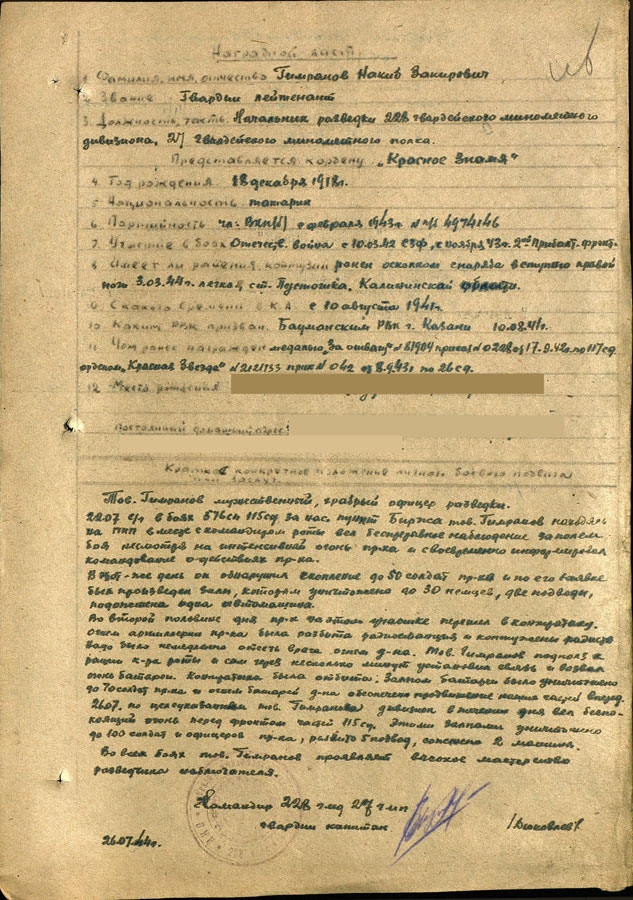 Наградной лист.
1 Фамилия, имя, отчество Гимранов Накиб Закирович
2. Звание Гвардии лейтенант
3. Должность, часть. Начальник разведки 228 гвардейского минометного
дивизиона, 27 гвардейского минометного полка.
Представляется к ордену „Красное Знамя"
4. Год рождения 18 декабря 1918г.
5 Национальность татарин
6 Партийность чл. ВКП(б) с февраля 1943г N п/б 4974146
7. Участие в боях Отечеств. война с 10.03.42 СЗФ, с ноября 43г. 2ой Прибалт. фронт.
8 Имеет ли ранения, контузии ранен осколком снаряда в ступню правой
ноги 3.03.44г. легкое, ст. Пустошка, Калининской области.
9 С какого времени в К.А. с 10 августа 1941г.
10. Каким РВК призван. Бауманским РВК г. Казани 10.08.41г.
11 Чем ранее награжден медалью „За отвагу" приказ N 0228 от 17.9.42г. по 117 сд.
орденом „Красная Звезда" N 212133 приказ N 042 от 8.9.43г по 26 сд.
12 Место рождения
Постоянный домашний адрес:
Краткое конкретное изложение личного боевого подвига
или заслуг.
Тов. Гимранов мужественный, храбрый офицер разведки.
22.07 с/г в боях 576 сп 115 сд. за нас. пункт Биржа тов. Гимранов находясь
на ПНП вместе с командиром роты вел беспрерывное наблюдение за полем
боя несмотря на интенсивный огонь пр-ка и своевременно информировал
командование о действиях пр-ка.
В этот-же день он обнаружил скопление до 50 солдат пр-ка и по его заявке
был произведен залп, которым уничтожено до 30 немцев, две подводы,
подожжена одна автомашина.
Во второй половине дня пр-к на этом участке перешел в контратаку.
Огнем артиллерии пр-ка была разбита радиостанция и контужены радисты
Надо было немедленно отсечь врага огнем д-на. Тов. Гимранов подполз к
рации к-ра роты и сам через несколько минут установил связь и вызвал
огонь батареи. Контратака была отбита. Залпом батареи было уничтожено
до 70 солдат пр-ка и огнем батарей д-на обеспечено продвижение наших частей вперед.
26.07. по целеуказаниям тов. Гимранова дивизион в течении дня вел беспо-
коящий огонь перед фронтом частей 115 сд. Этими залпами уничтожено
до 100 солдат и офицеров пр-ка, разбито 5 подвод, сожжено 2 машины.
Во всех боях тов. Гимранов проявляет высокое мастерство
разведчика наблюдателя.
Командир 228 гмд 27 гмп
гвардии капитан
26.07.44г.